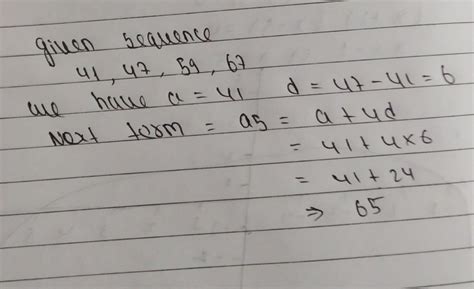 given sequence
41, 47, 59, 67
we have a = 41 d = 47 - 41 = 6
Next term = a5 = a + 4d
= 41 + 4x6
= 41 + 24
⇒ 65